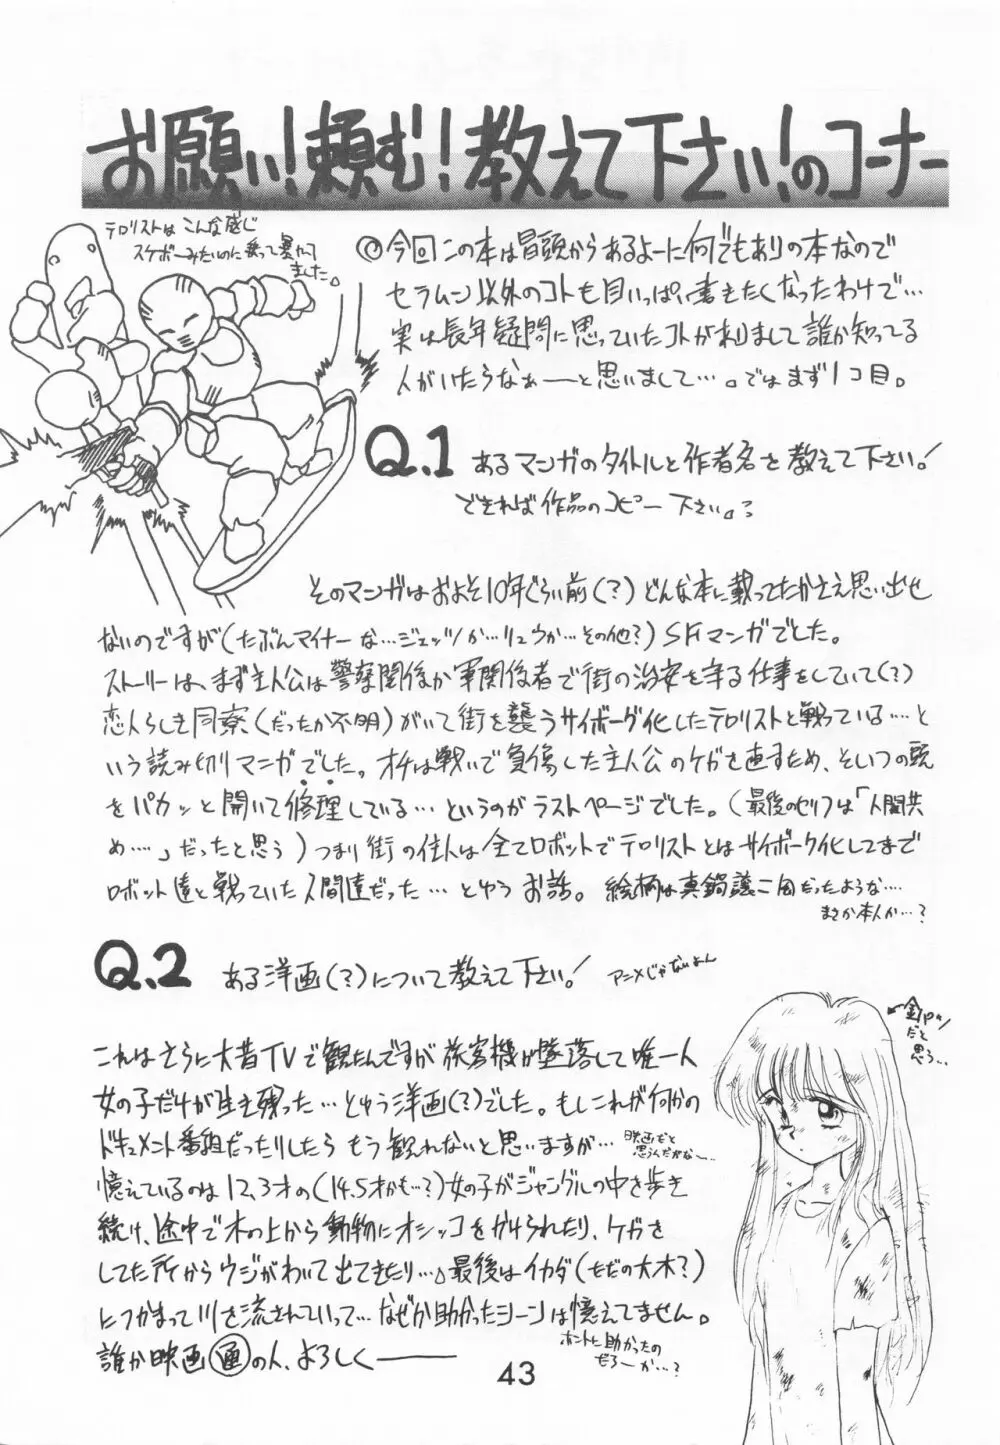 お願い!頼む!教えて下さい!のコーナー
テロリストはこんな感じ
スケボーみたいのに乗って暴れて
ました。
◎今回この本は冒頭からあるよーに何でもありの本なので
セラムン以外のコトも目いっぱい書きたくなったわけで…
実は長年疑問に思っていたコトがありまして誰か知ってる
人がいたらなぁーーと思いまして…。ではまず1コ目。
Q.1 あるマンガのタイトルと作者名を教えて下さい!
できれば作品のコピー下さい。
そのマンガはおよそ10年ぐらい前(?)どんな本に載ってたかさえ思い出せ
ないのですが(たぶんマイナーな…ジェッツか…リュウか…その他?)SFマンガでした。
ストーリーは、まず主人公は警察関係か軍関係者で街の治安を守る仕事をしていて(?)
恋人らしき同寮(だったか不明)がいて街を襲うサイボーグ化したテロリストと戦っている…と
いう読み切りマンガでした。オチは戦いで負傷した主人公のケガを直すため、そいつの頭
をパカッと開いて修理している…というのがラストページでした。(最後のセリフは「人間共
め…」だったと思う)つまり街の住人は全てロボットでテロリストとはサイボーグ化してまで
ロボット達と戦っていた人間達だった…とゆうお話。絵柄は真鍋譲二風だったような…
まさか本人か…?
Q.2 ある洋画(?)について教えて下さい! アニメじゃないよん
これはさらに大昔TVで観たんですが旅客機が墜落して唯一人
女の子だけが生き残った…とゆう洋画(?)でした。もしこれが何かの
ドキュメント番組だったりしたらもう観れないと思いますが…映画だと
思うんだがなー…
憶えているのは12,3才の(14.5才かも…?)女の子がジャングルの中を歩き
続け、途中で木の上から動物にオシッコをかけられたり、ケガを
してた所からウジがわいて出てきたり…。最後はイカダ(ただの大木?)
につかまって川を流されていって…なぜか助かったシーンは憶えてません。
ホントに助かったの
だろーか…?
誰か映画通の人、よろしくーー
金パツ
だと
思う…
43